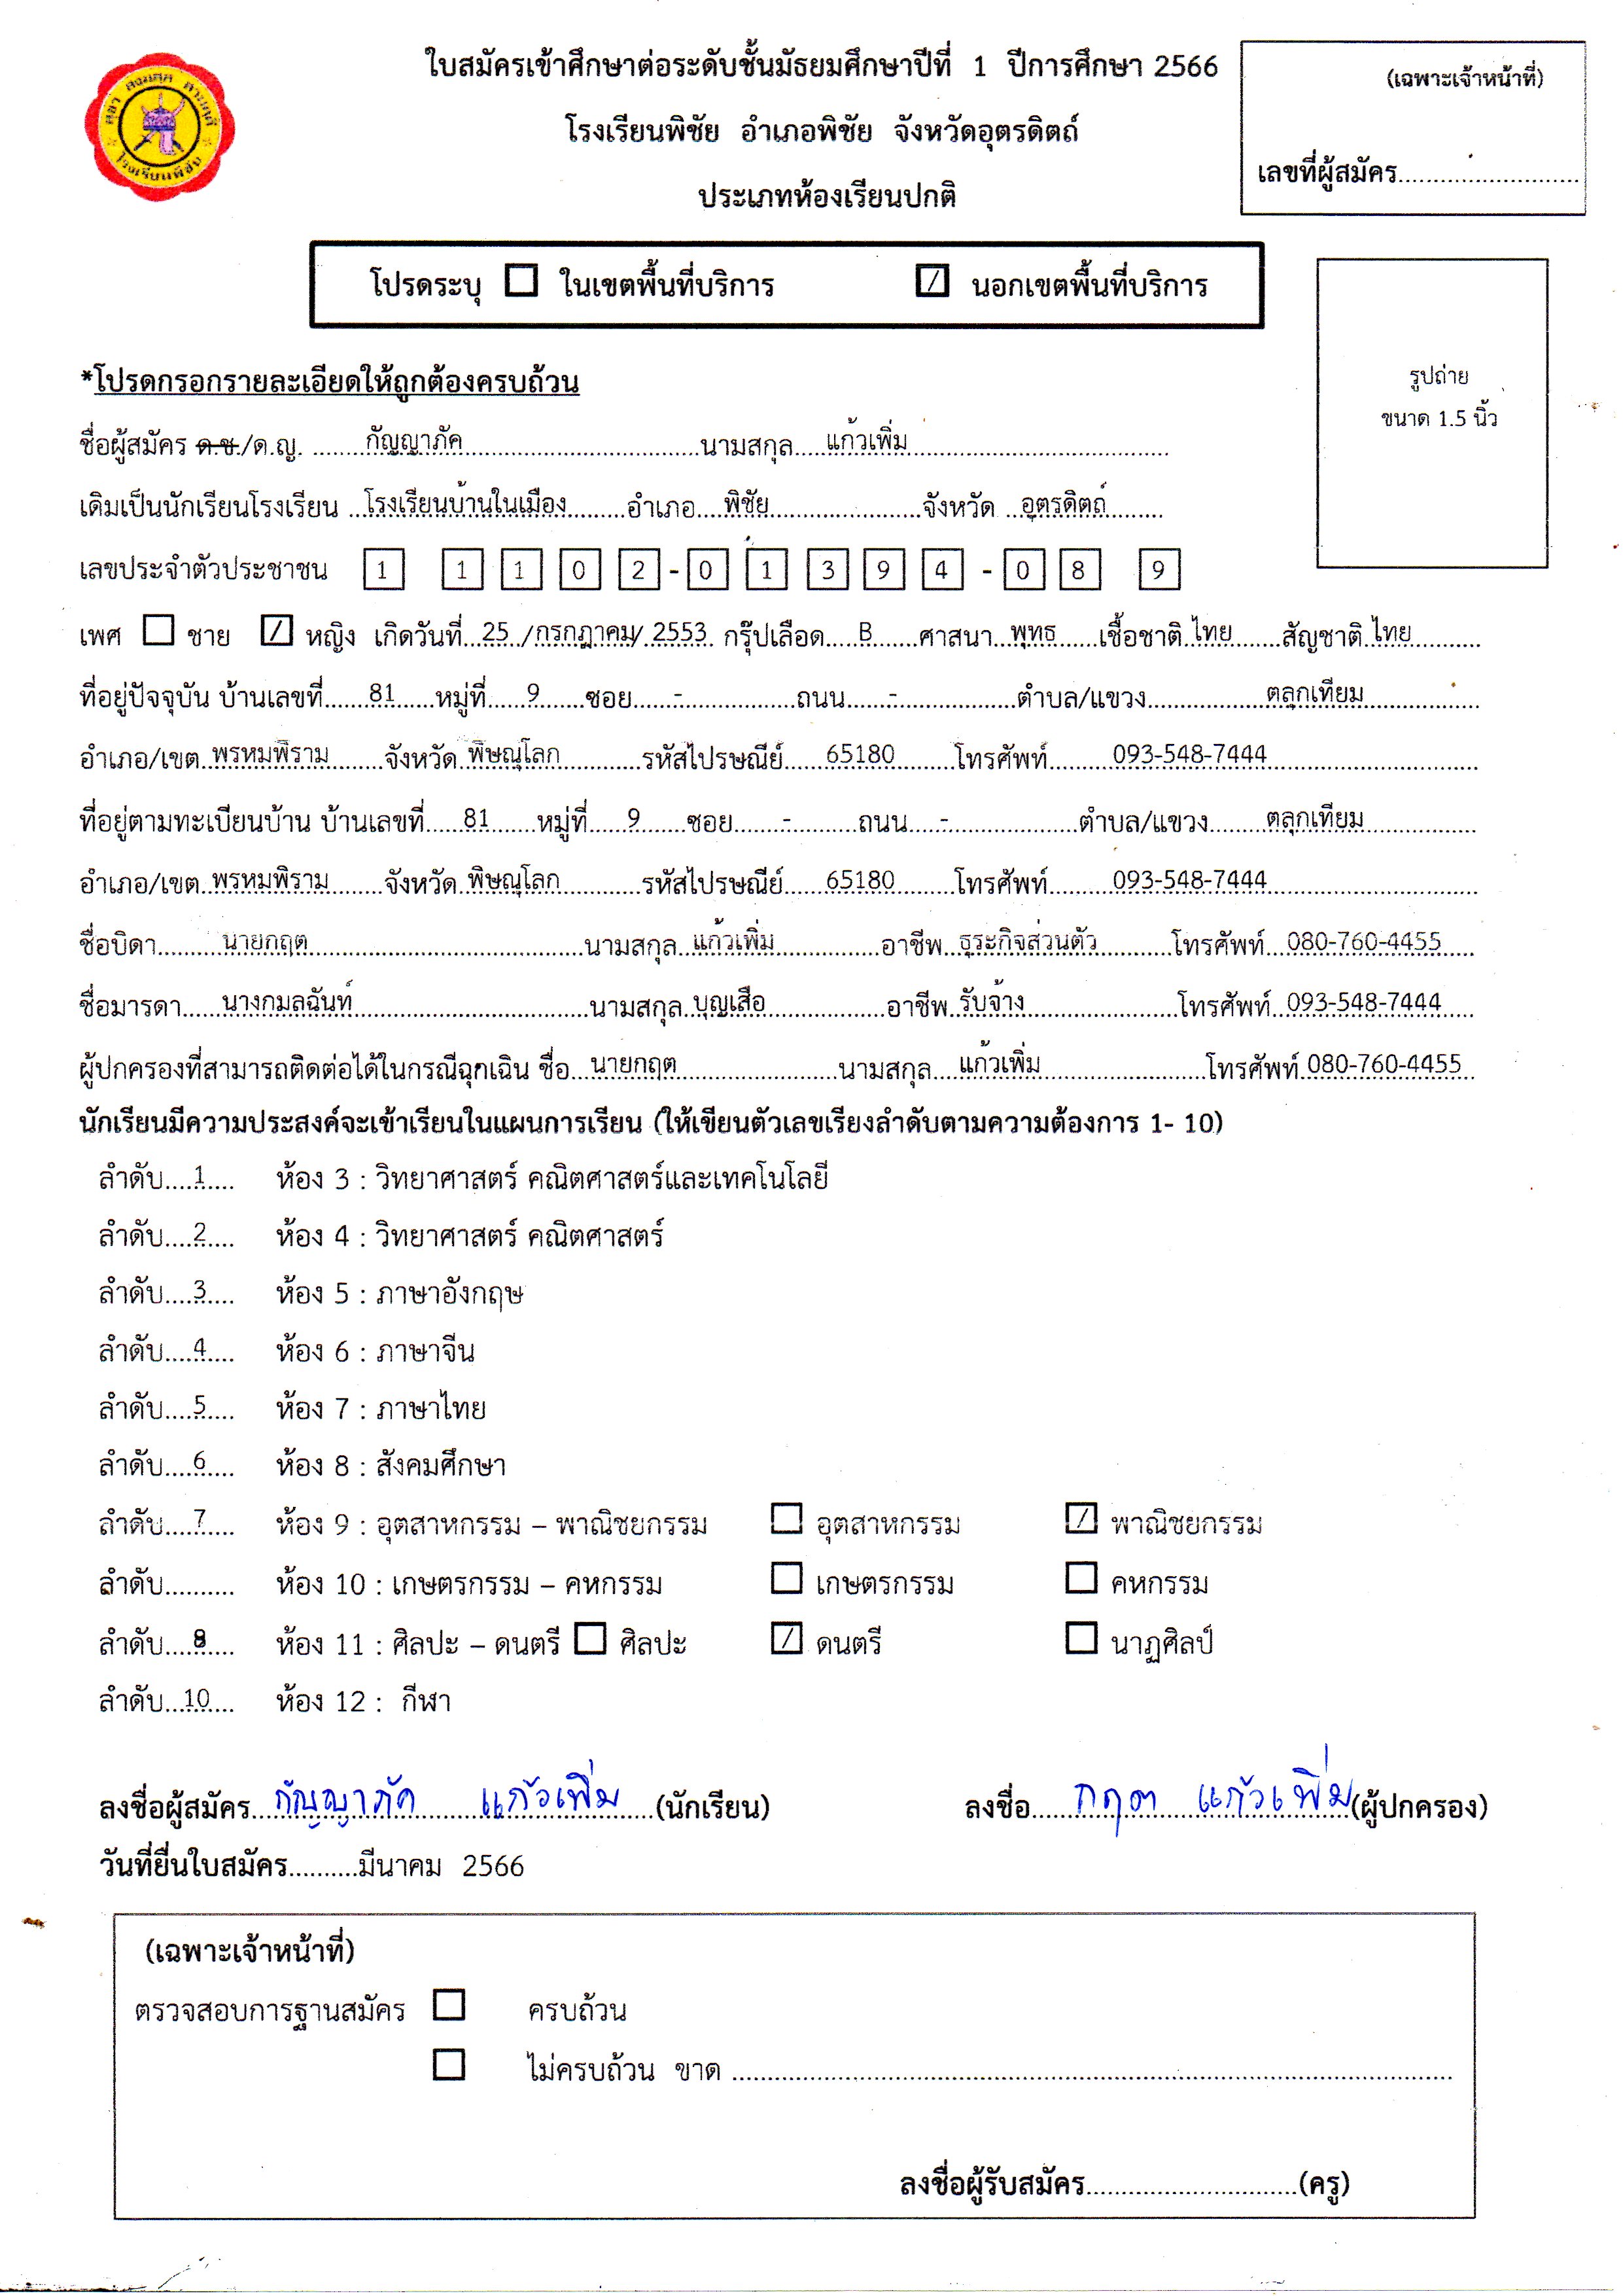 ใบสมัครเข้าศึกษาต่อระดับชั้นมัธยมศึกษาปีที่ 1 ปีการศึกษา 2566
(เฉพาะเจ้าหน้าที่)
โรงเรียนพิชัย อำเภอพิชัย จังหวัดอุตรดิตถ์
เลขที่ผู้สมัคร..........................
ประเภทห้องเรียนปกติ
โรงเรียนพิชัย
โปรดระบุ ☐ ในเขตพื้นที่บริการ ☑ นอกเขตพื้นที่บริการ
รูปถ่าย
ขนาด 1.5 นิ้ว
*โปรดกรอกรายละเอียดให้ถูกต้องครบถ้วน
ชื่อผู้สมัคร ด.ช./ด.ญ. กัญญาภัค นามสกุล แก้วเพิ่ม
เดิมเป็นนักเรียนโรงเรียน โรงเรียนบ้านในเมือง อำเภอ พิชัย จังหวัด อุตรดิตถ์
เลขประจำตัวประชาชน 1 1 1 0 2 - 0 1 3 9 4 - 0 8 9
เพศ ☐ ชาย ☑ หญิง เกิดวันที่ 25 / กรกฎาคม / 2553 กรุ๊ปเลือด B ศาสนา พุทธ เชื้อชาติ ไทย สัญชาติ ไทย
ที่อยู่ปัจจุบัน บ้านเลขที่ 81 หมู่ที่ 9 ซอย - ถนน - ตำบล/แขวง ตลุกเทียม
อำเภอ/เขต พรหมพิราม จังหวัด พิษณุโลก รหัสไปรษณีย์ 65180 โทรศัพท์ 093-548-7444
ที่อยู่ตามทะเบียนบ้าน บ้านเลขที่ 81 หมู่ที่ 9 ซอย - ถนน - ตำบล/แขวง ตลุกเทียม
อำเภอ/เขต พรหมพิราม จังหวัด พิษณุโลก รหัสไปรษณีย์ 65180 โทรศัพท์ 093-548-7444
ชื่อบิดา นายกฤต นามสกุล แก้วเพิ่ม อาชีพ ธุระกิจส่วนตัว โทรศัพท์ 080-760-4455
ชื่อมารดา นางกมลฉันท์ นามสกุล บุญเสือ อาชีพ รับจ้าง โทรศัพท์ 093-548-7444
ผู้ปกครองที่สามารถติดต่อได้ในกรณีฉุกเฉิน ชื่อ นายกฤต นามสกุล แก้วเพิ่ม โทรศัพท์ 080-760-4455
นักเรียนมีความประสงค์จะเข้าเรียนในแผนการเรียน (ให้เขียนตัวเลขเรียงลำดับตามความต้องการ 1- 10)
ลำดับ 1 ห้อง 3 : วิทยาศาสตร์ คณิตศาสตร์และเทคโนโลยี
ลำดับ 2 ห้อง 4 : วิทยาศาสตร์ คณิตศาสตร์
ลำดับ 3 ห้อง 5 : ภาษาอังกฤษ
ลำดับ 4 ห้อง 6 : ภาษาจีน
ลำดับ 5 ห้อง 7 : ภาษาไทย
ลำดับ 6 ห้อง 8 : สังคมศึกษา
ลำดับ 7 ห้อง 9 : อุตสาหกรรม – พาณิชยกรรม ☐ อุตสาหกรรม ☑ พาณิชยกรรม
ลำดับ.......... ห้อง 10 : เกษตรกรรม – คหกรรม ☐ เกษตรกรรม ☐ คหกรรม
ลำดับ 8 ห้อง 11 : ศิลปะ – ดนตรี ☐ ศิลปะ ☑ ดนตรี ☐ นาฏศิลป์
ลำดับ 10 ห้อง 12 : กีฬา
ลงชื่อผู้สมัคร กัญญาภัค แก้วเพิ่ม (นักเรียน) ลงชื่อ กฤต แก้วเพิ่ม (ผู้ปกครอง)
วันที่ยื่นใบสมัคร..........มีนาคม 2566
(เฉพาะเจ้าหน้าที่)
ตรวจสอบการฐานสมัคร ☐ ครบถ้วน
☐ ไม่ครบถ้วน ขาด ..........
ลงชื่อผู้รับสมัคร..............................(ครู)